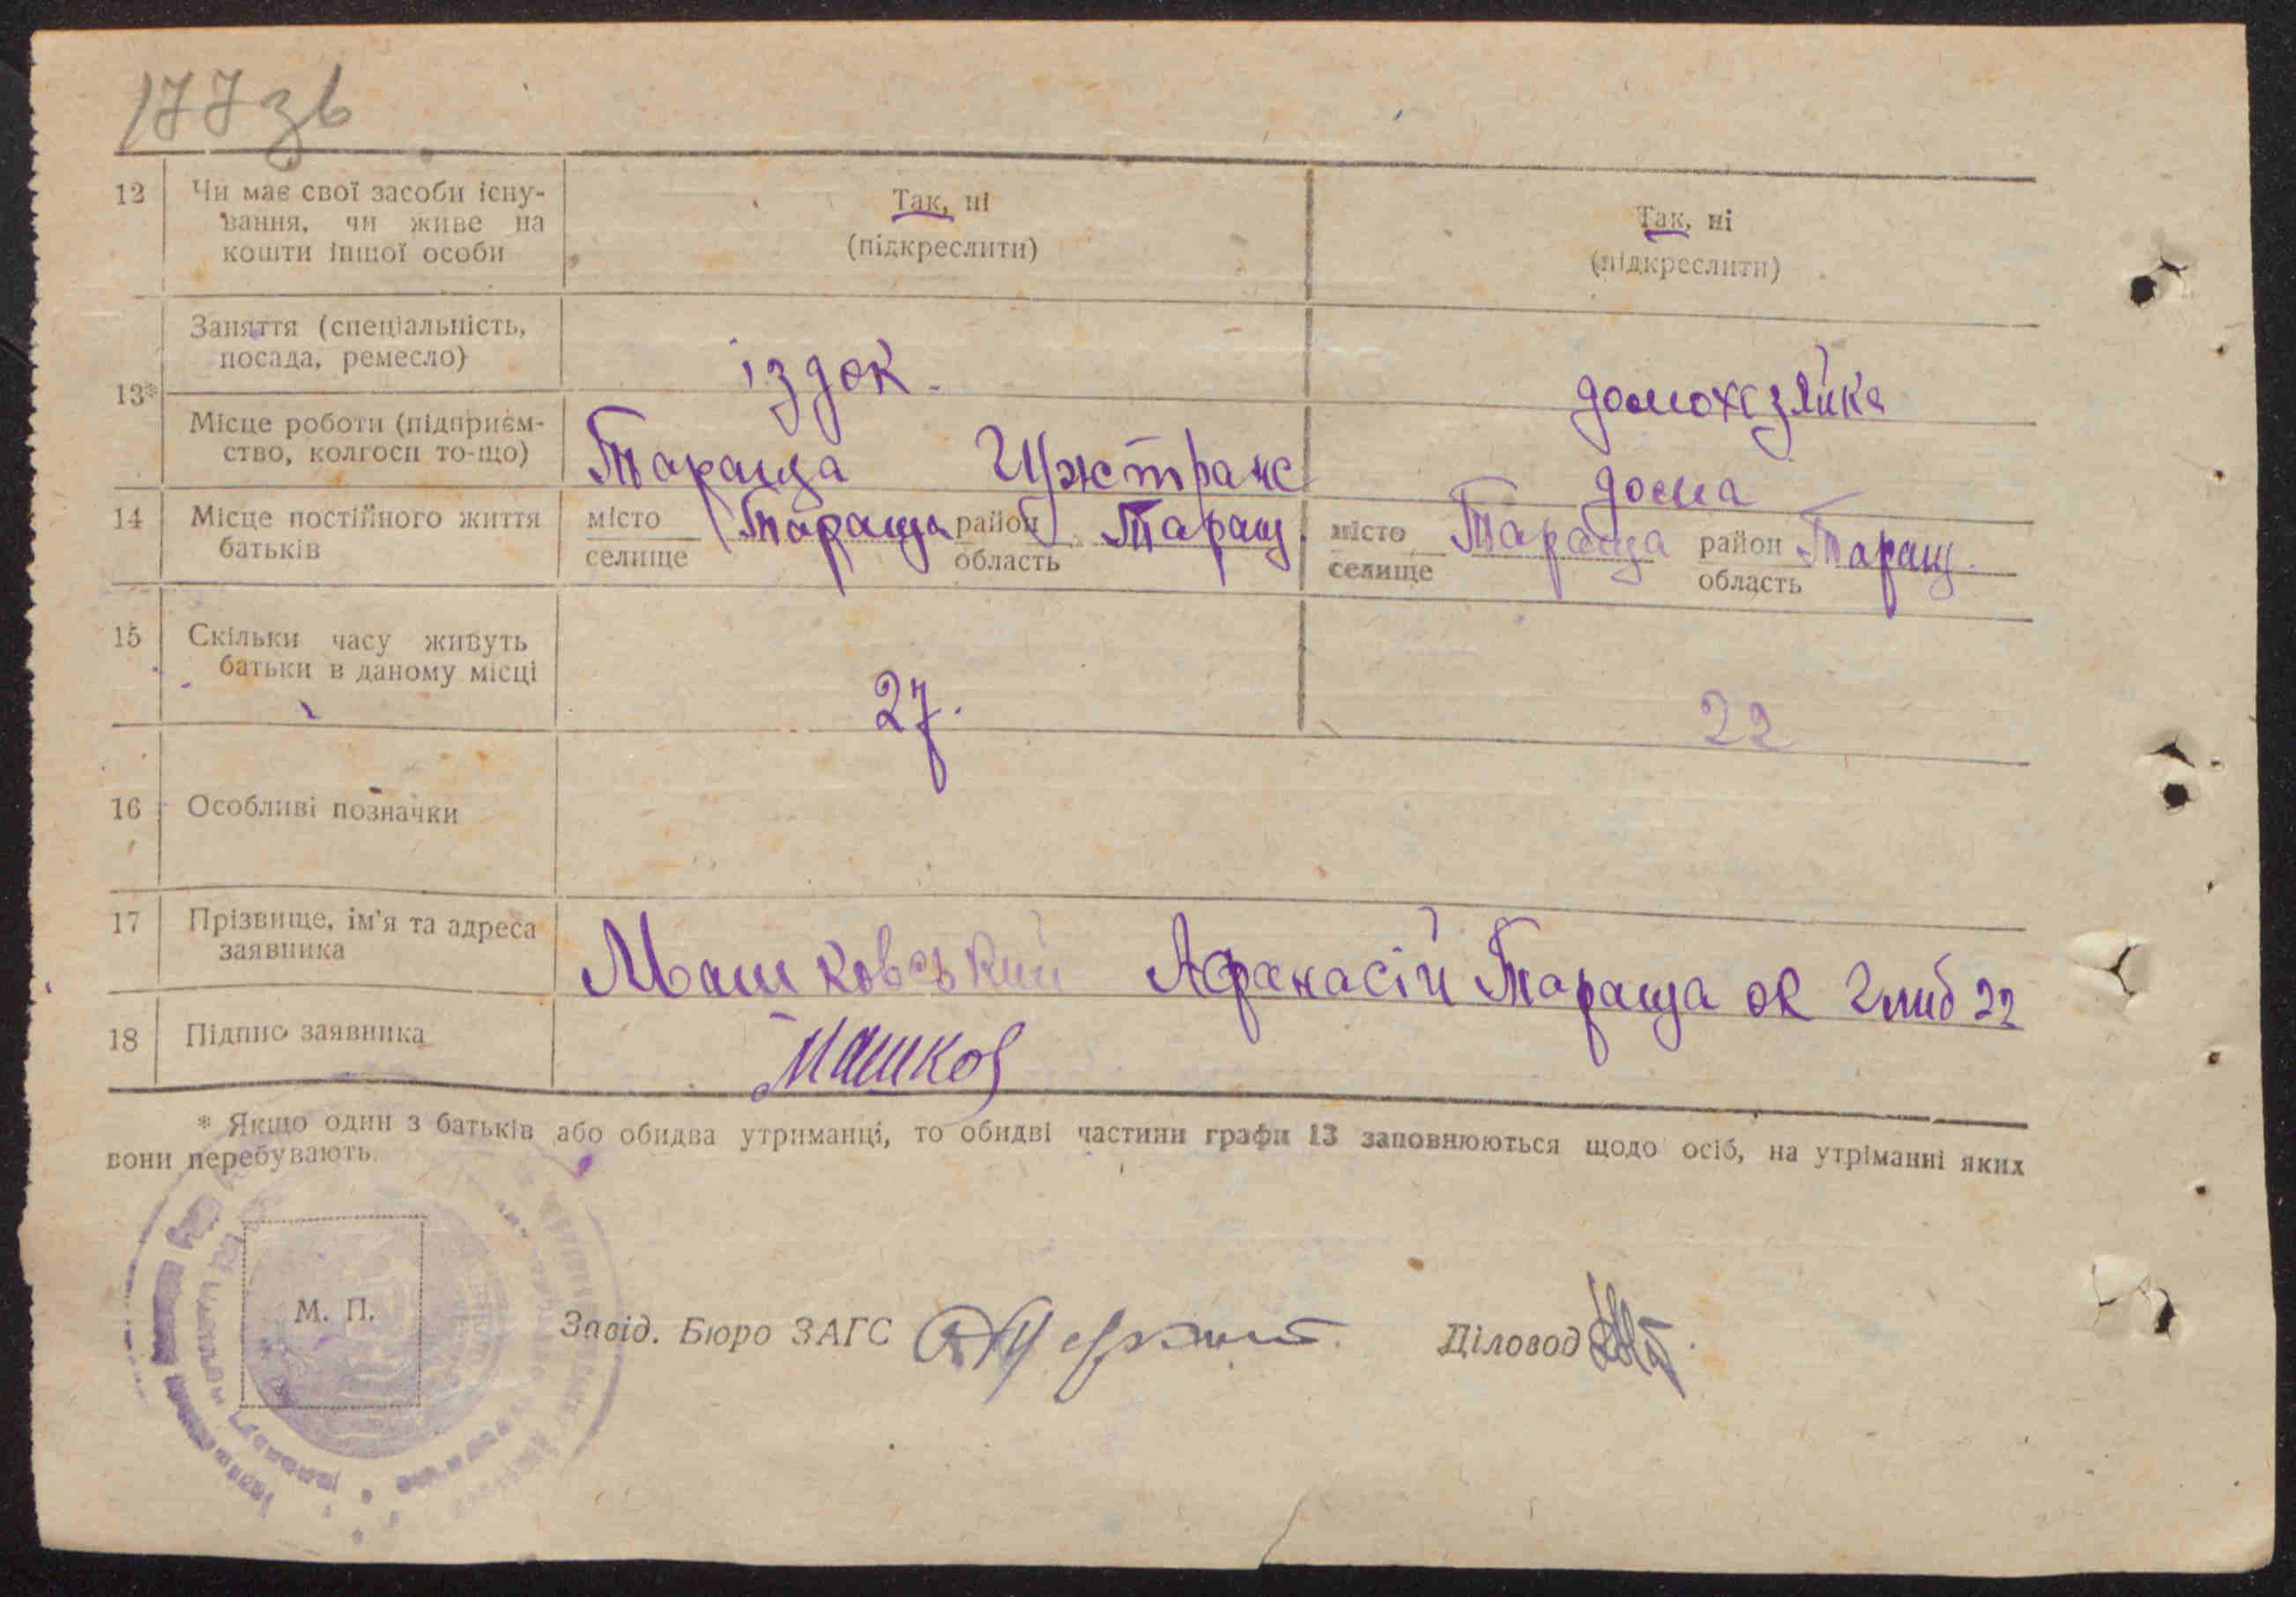 177зв
12 Чи має свої засоби існу-
вання, чи живе на
кошти іншої особи
Так, ні
(підкреслити)
Так, ні
(підкреслити)
13*
Заняття (спеціальність,
посада, ремесло)
іздок.
домохозяйка
Місце роботи (підприєм-
ство, колгосп то-що)
Тараща
дома
14 Місце постійного життя
батьків
місто Тараща район Таращ
селище область
місто Тараща район Таращ.
селище область
15 Скільки часу живуть
батьки в даному місці
27.
22
16 Особливі позначки
17 Прізвище, ім'я та адреса
заявника
Машковський Афанасій Тараща ок 22
18 Підпис заявника
Машков
* Якщо один з батьків або обидва утриманці, то обидві частини графи 13 заповнюються щодо осіб, на утріманні яких
вони перебувають.
М. П.
Завід. Бюро ЗАГС
Діловод